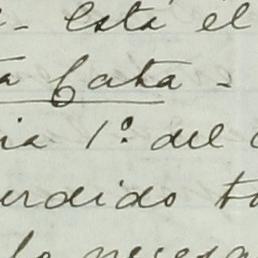 - Esta el
a Cata -
ia 1º. del
erdido to
lo necesa